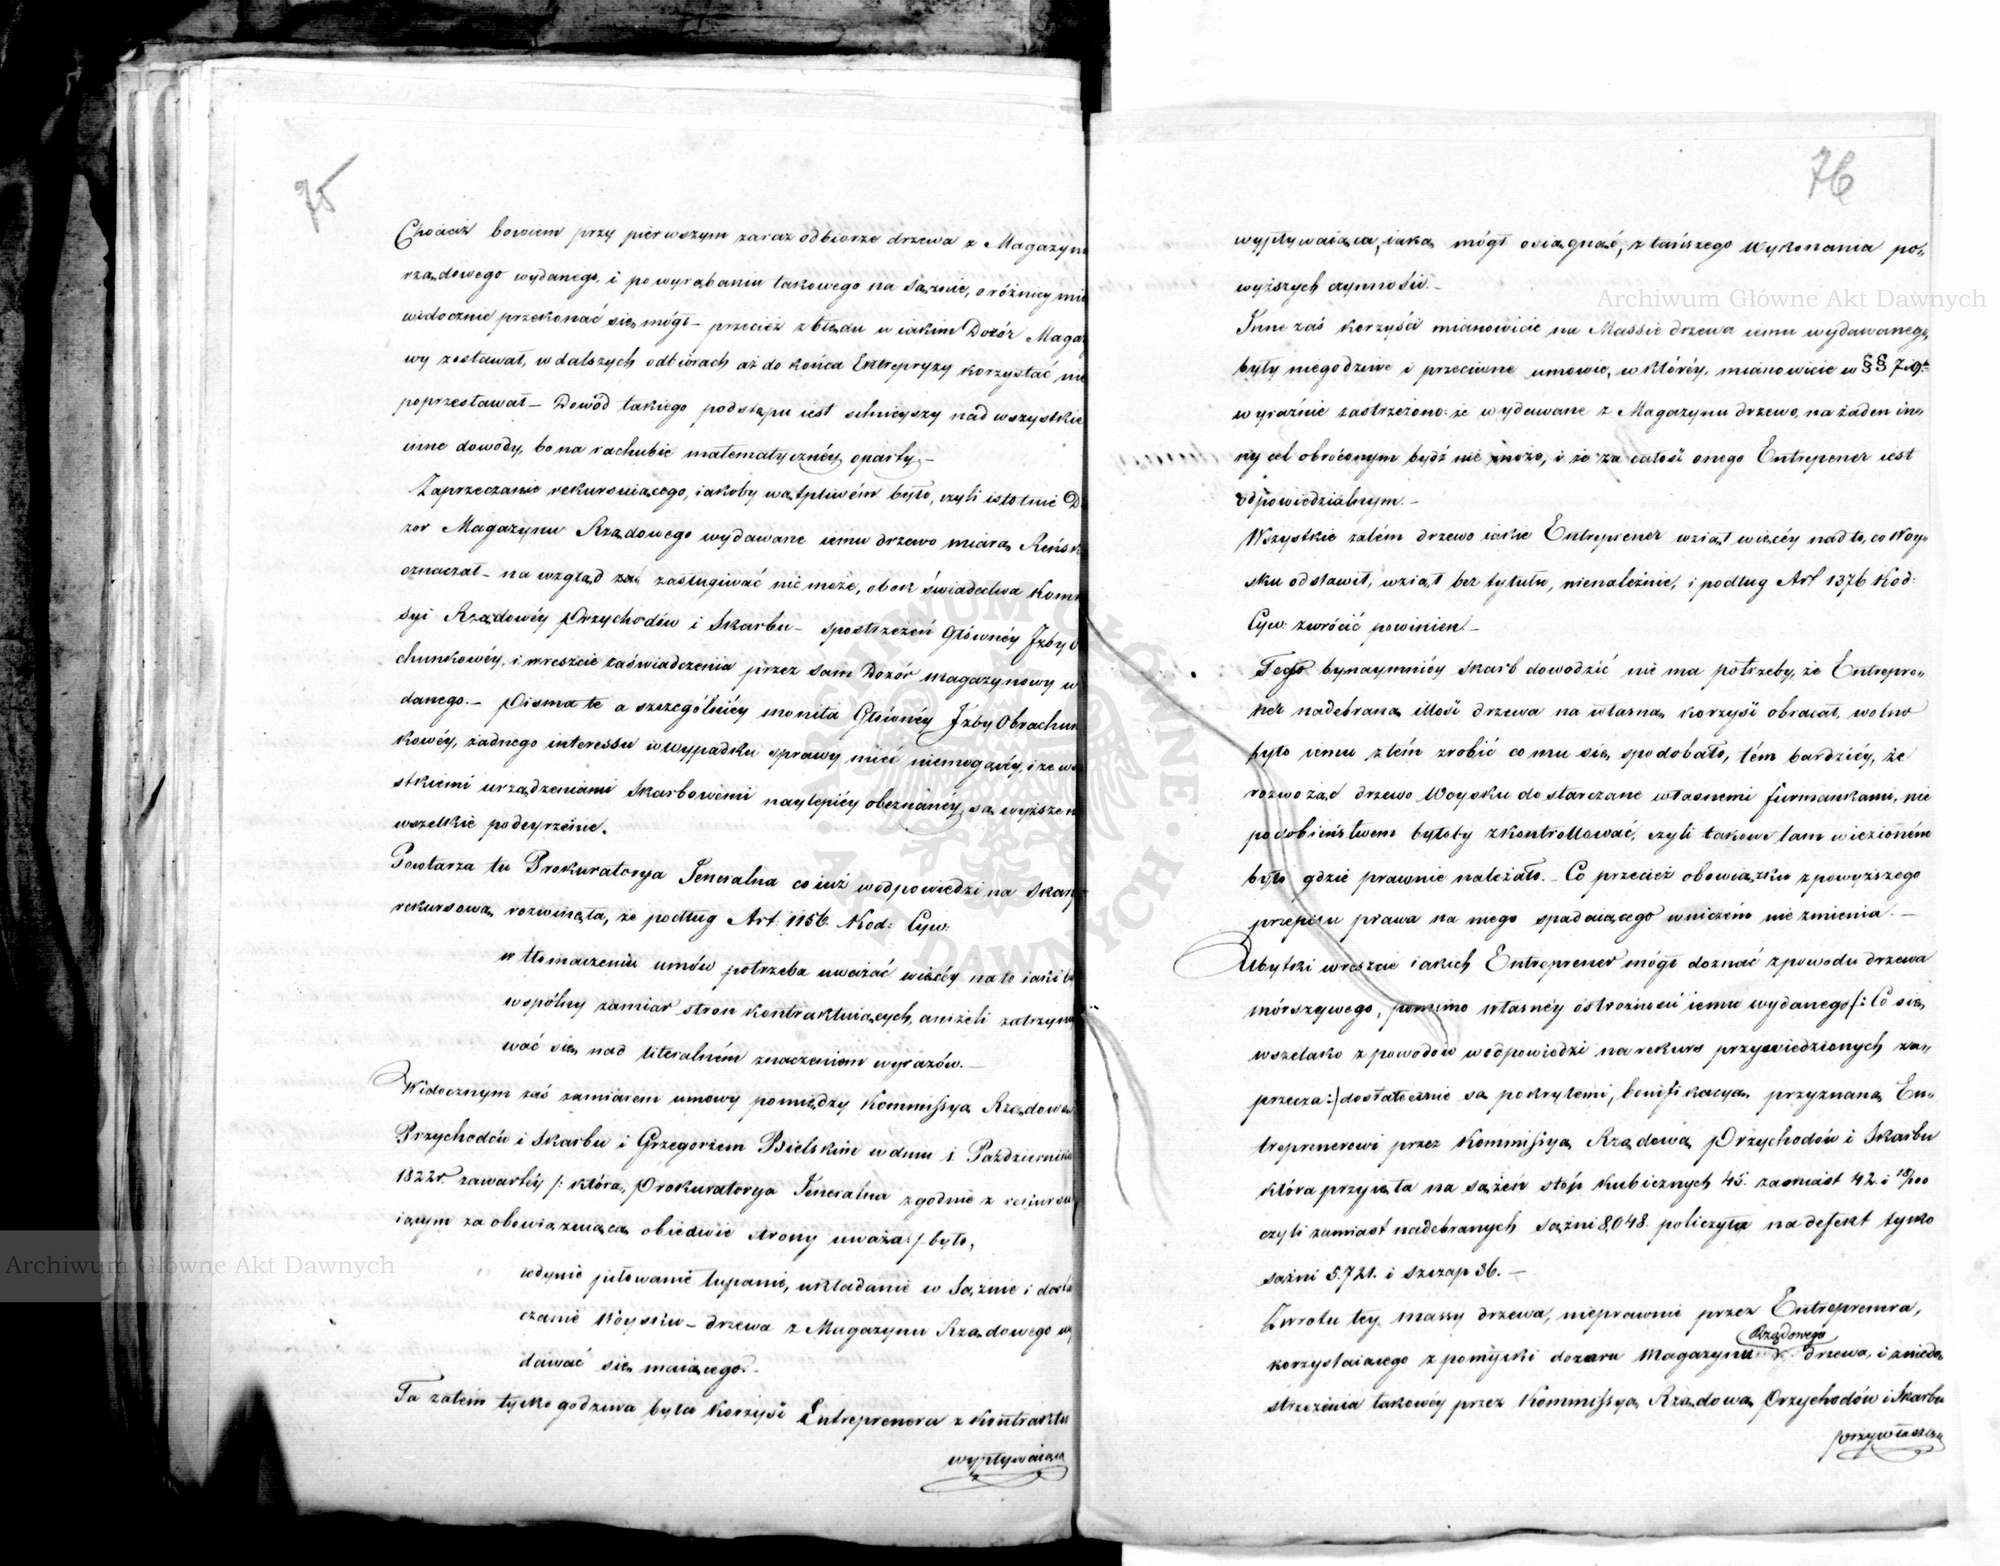 75
Chociaż bowiem przy pierwszym zaraz odbiorze drzewa z Magazyn
rządowego wydanego, i powyrąbaniu takowego na Sążnie, o różnicy mia
widocznie przekonać się mógł – przecież z błędu w iakim Dozór Magaz
wy zostawał, w dalszych odbiorach aż do końca Entrepryzy korzystać nie
poprzestawał – Dowód takiego podstępu iest silnieyszy nad wszystkie
inne dowody, bo na rachubie matematycznéy oparty. –
Zaprzeczanie rekursuiącego, iakoby wątpliwém było, czyli istotnie D
zor Magazynu Rządowego wydawane iemu drzewo miarą Reńsk
oznaczał – na wzgląd zaś zasługiwać nie może, obok świadectwa Kom
syi Rządowéy Przychodów i Skarbu – spostrzeżeń Głównéy Izby O
chunkowéy, i wreszcie zaświadczenia przez sam Dozór Magazynowy w
danego. – Pisma te a szczególniéy monita Głównéy Izby Obrachun
kowéy, żadnego interessu w wypadku sprawy mieć niemogącéy, i ze w
stkiemi urządzeniami Skarbowemi naylepiéy obeznanéy, są wyższe n
wszelkie podeyrzenie.
Powtarza tu Prokuratorya Jeneralna co iuż w odpowiedzi na Skar
rekursową rozwinęła, że podług Art. 1156. Kod: Cyw:
w tłomaczeniu umów potrzeba uważać więcéy na to iaki b
wspólny zamiar stron kontraktuiących, aniżeli zatrzym
wać się nad literalném znaczeniem wyrazów. –
Widocznym zaś zamiarem umowy pomiędzy Kommissyą Rządową
Przychodów i Skarbu i Grzegorzem Bielskim w dniu 1 Październik
1822r. zawartéy /: którą, Prokuratorya Jeneralna zgodnie z rekursu
iącym za obowiązuiącą obiedwie strony uważa :/ było,
iedynie piłowanie łupanie, układanie w Sążnie i dosta
czanie Woysku – drzewa z Magazynu Rządowego wy
dawać się maiącego. –
Ta zatem tylko godziwa była korzyść Entreprenera z Kontraktu
wypływaiąca
76
wypływaiąca, iaką mógł osiągnąć, z tańszego Wykonania po-
wyższych czynności. –
Inne zaś korzyści mianowicie na Massie drzewa iemu wydawanego,
były niegodziwe i przeciwne umowie, w któréy, mianowicie w §§ 7 i 9.
wyraźnie zastrzeżono: że wydawane z Magazynu drzewo, na żaden in-
ny cel obróconym bydź nie może, i że za całość onego Entreprener iest
odpowiedzialnym. –
Wszystkie zatém drzewo iakie Entreprener wziął więcéy nad to, co Woy-
sku odstawił, wziął bez tytułu, nienależnie, i podług Art 1376 Kod:
Cyw: zwrócić powinien. –
Tego bynaymniéy Skarb dowodzić nie ma potrzeby, że Entrepre-
ner nadebraną illość drzewa na własną korzyść obracał, wolno
było iemu z tém zrobić co mu się spodobało, tém bardziéy, że
rozwożąc drzewo Woysku dostarczane własnemi furmankami, nie
podobieństwem byłoby zkontrollować, czyli takowe tam wiezioném
było gdzie prawnie należało. – Co przecież obowiązku z powyższego
przepisu prawa na niego spadaiącego w niczém nie zmienia. –
Ubytki wreszcie iakich Entreprener mógł doznać z powodu drzewa
mórszywego, pomimo własnéy ostrożności iemu wydanego /: Co się
wszelako z powodów w odpowiedzi na rekurs przywiedzionych za-
przecza :/ dostatecznie są pokrytemi, bonifikacyą przyznaną En-
treprenerowi przez Kommissyą Rządową Przychodów i Skarbu
która przyięła na sążeń stóp kubicznych 45. zamiast 42. i 18/100
czyli zamiast nadebranych sążni 8,048. policzyła na defekt tylko
sążni 5.721. i szczap 36. –
Zwrotu tey massy drzewa, nieprawnie przez Entreprenera,
Rządowego
korzystaiącego z pomyłki dozoru Magazynu drzewa, i z niedo-
strzeżenia takowéy przez Kommissyą Rządową Przychodów i Skarbu
przywłaszczo
Archiwum Główne Akt Dawnych
Archiwum Główne Akt Dawnych
ARCHIWUM GŁÓWNE AKT DAWNYCH